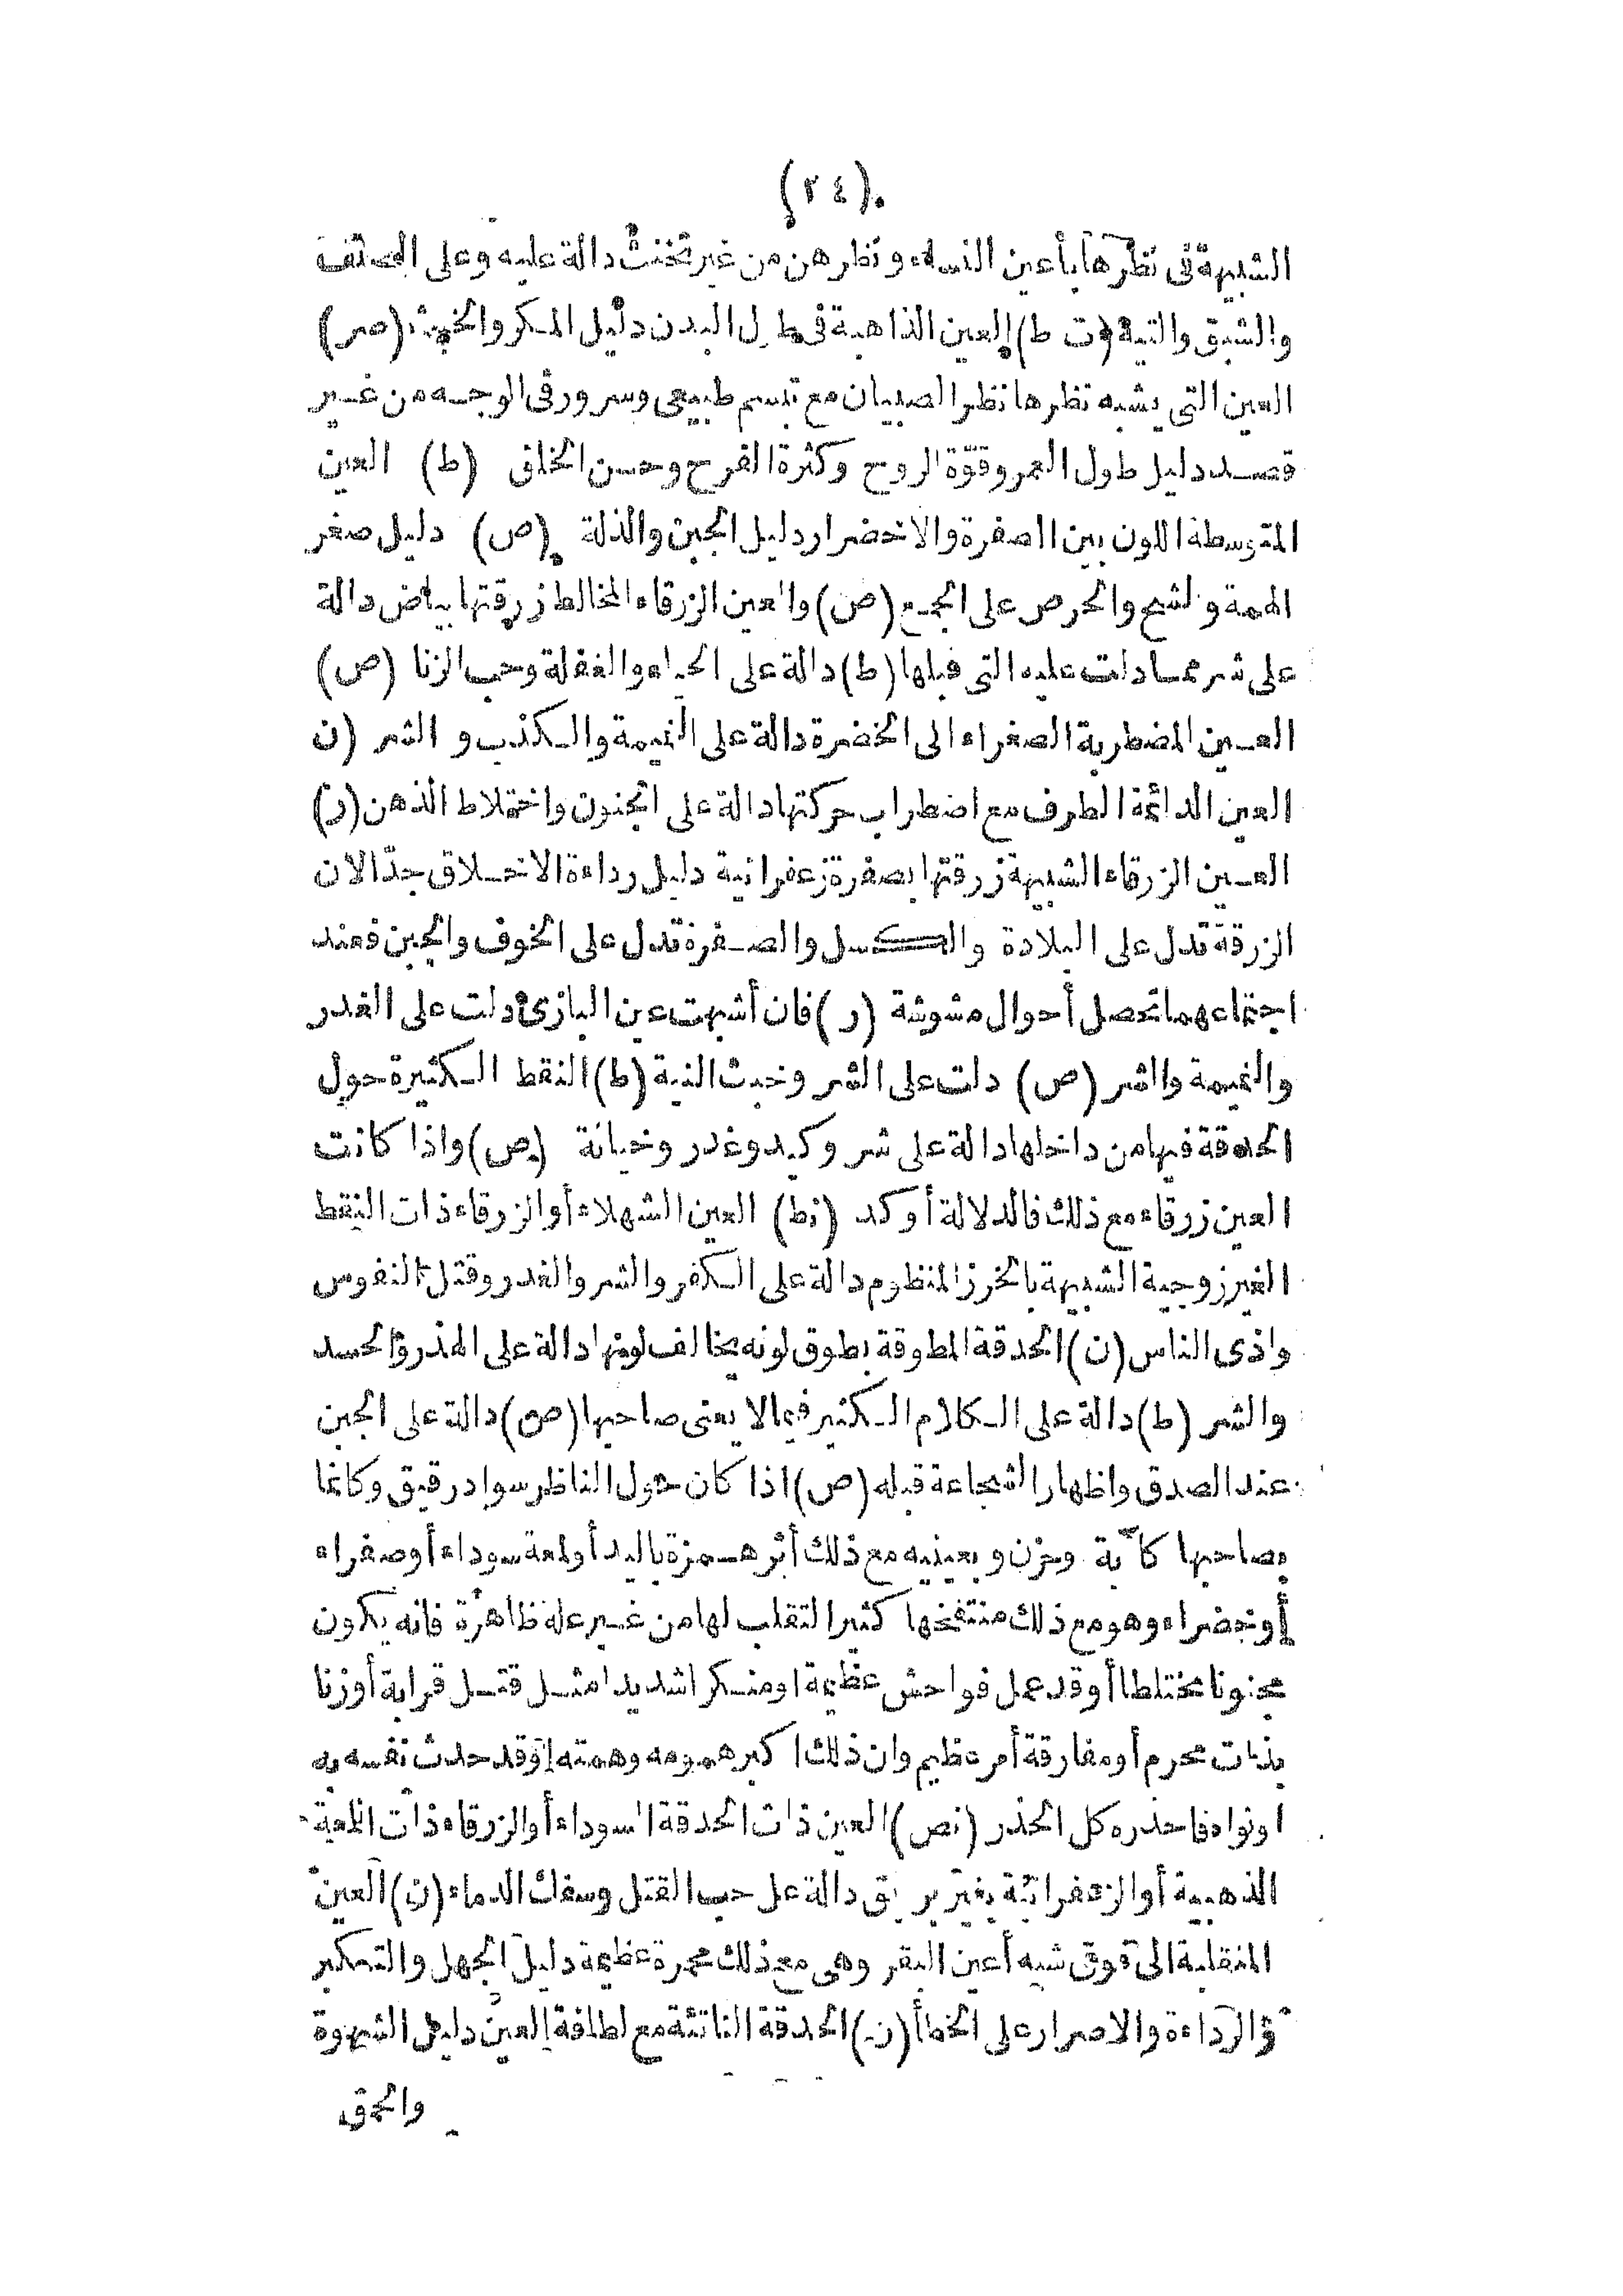 (٢٤)
الشبيهة فى نظرها بأعين النساء ونظرهن من غير تخنث دالة عليه وعلى
والشبق والتيه (ت ط) العين الذاهبة فى طول البدن دليل المكر والخبث (صر)
العين التى يشبه نظرها نظر الصبيان مع تبسم طبيعى وسرور فى الوجه من غير
قصد دليل طول العمر وقوّة الروح وكثرة الفرح وحسن الخلق (ط) العين
المتوسطة اللون بين الصفرة والاخضرار دليل الجبن والذلة (ص) دليل صغر
الهمة والشح والحرص على الجمع (ص) والعين الزرقاء المخالط زرقتها بياض دالة
على شر مما دلت عليه التى قبلها (ط) دالة على الحياء والغفلة وحب الزنا (ص)
العين المضطربة الصغراء الى الخضرة دالة على النميمة والكذب و الشر (ن
العين الدائمة الطرف مع اضطراب حركتها دالة على الجنون واختلاط الذهن (ر)
العين الزرقاء الشبيهة زرقتها بصفرة زعفرانية دليل رداءة الاخلاق جدّا لان
الزرقة تدل على البلادة والكسل والصفرة تدل على الخوف والجبن فعند
اجتماعهما تحصل أحوال مشوشة (ر) فان أشبهت عين البازى دلت على الغدر
والنميمة والشر (ص) دلت على الشر وخبث النية (ط) النقط الكثيرة حول
الحدقة فيها من داخلها دالة على شر وكيد وغدر وخيانة (ص) واذا كانت
العين زرقاء مع ذلك فالدلالة أوكد (نط) العين الشهلاء أو الزرقاء ذات النقط
الغير زوجية الشبيهة بالخرز المنظوم دالة على الكفر والشر والغدر وقتل النفوس
واذى الناس (ن) الحدقة المطوقة بطوق لونه يخالف لونها دالة على الهذر والحسد
والشر (ط) دالة على الكلام الكثير فيما لا يعنى صاحبها (ص) دالة على الجبن
عند الصدق واظهار الشجاعة قبله (ص) اذا كان حول الناظر سواد رقيق وكانما
بصاحبها كآبة وحزن و بعينيه مع ذلك أثر همزة باليد أو لمعة سوداء أو صفراء
أو خضراء وهو مع ذلك منتفخها كثير التقلب لها من غير علة ظاهرة فانه يكون
مجنونا مختلطا أو قد عمل فواحش عظيمة او منكرا شديدا مثل قتل قرابة أو زنا
بذات محرم أو مفارقة أمر عظيم وان ذلك اكبر همومه وهمته أو قد حدث نفسه به
او نواه فاحذره كل الحذر (نص) العين ذات الحدقة السوداء أو الزرقاء ذات
الذهبية أو الزعفرانية بغير بريق دالة على حب القتل وسفك الدماء (ن) العين
المنقلبة الى فوق شبه أعين البقر وهى مع ذلك محمرة عظيمة دليل الجهل والتكبر
والرداءة والاصرار على الخطأ (ن) الحدقة الناتئة مع لطافة العين دليل الشهوة
والحمق